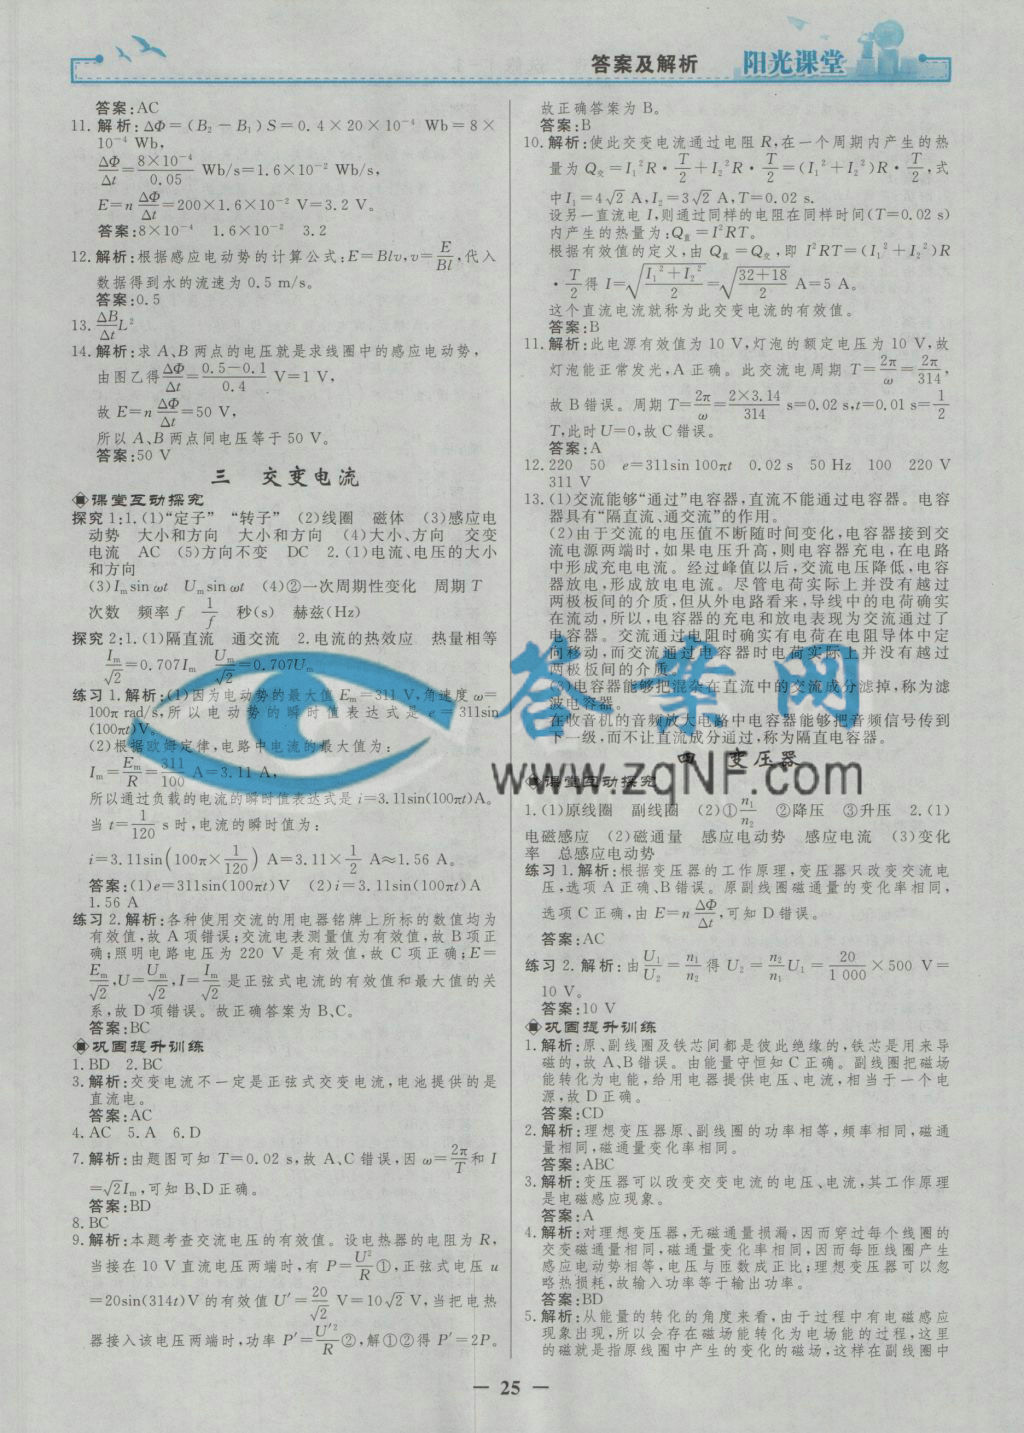 答案及解析 阳光课堂
答案:AC
11. 解析:ΔΦ=(B₂-B₁)S=0.4×20×10⁻⁴ Wb=8×
10⁻⁴ Wb,
ΔΦ/Δt=8×10⁻⁴/0.05 Wb/s=1.6×10⁻² Wb/s,
E=n ΔΦ/Δt=200×1.6×10⁻² V=3.2 V。
答案:8×10⁻⁴ 1.6×10⁻² 3.2
12. 解析:根据感应电动势的计算公式:E=Blv,v=E/Bl,代入
数据得到水的流速为 0.5 m/s。
答案:0.5
13. ΔB/Δt L²
14. 解析:求 A、B 两点的电压就是求线圈中的感应电动势,
由图乙得 ΔΦ/Δt=0.5-0.1/0.4 V=1 V,
故 E=n ΔΦ/Δt=50 V,
所以 A、B 两点间电压等于 50 V。
答案:50 V
三 交变电流
课堂互动探究
探究 1:1.(1)“定子” “转子” (2)线圈 磁体 (3)感应电
动势 大小和方向 大小和方向 (4)大小、方向 交变
电流 AC (5)方向不变 DC 2.(1)电流、电压的大小
和方向
(3)Iₘsin ωt Uₘsin ωt (4)②一次周期性变化 周期 T
次数 频率 f 1/f 秒(s) 赫兹(Hz)
探究 2:1.(1)隔直流 通交流 2.电流的热效应 热量相等
Iₘ/√2=0.707Iₘ Uₘ/√2=0.707Uₘ
练习 1. 解析:(1)因为电动势的最大值 Eₘ=311 V,角速度 ω=
100π rad/s,所以电动势的瞬时值表达式是 e=311sin
(100πt)V。
(2)根据欧姆定律,电路中电流的最大值为:
Iₘ=Eₘ/R=311/100 A=3.11 A,
所以通过负载的电流的瞬时值表达式是 i=3.11sin(100πt)A。
当 t=1/120 s 时,电流的瞬时值为:
i=3.11sin(100π×1/120) A=3.11×1/2 A≈1.56 A。
答案:(1)e=311sin(100πt)V (2)i=3.11sin(100πt)A
1.56 A
练习 2. 解析:各种使用交流的用电器铭牌上所标的数值均为
有效值,故 A 项错误;交流电表测量值为有效值,故 B 项正
确;照明电路电压为 220 V 是有效值,故 C 项正确;E=
Eₘ/√2,U=Uₘ/√2,I=Iₘ/√2 是正弦式电流的有效值和最大值的关
系,故 D 项错误。故正确答案为 B、C。
答案:BC
巩固提升训练
1. BD 2. BC
3. 解析:交变电流不一定是正弦式交变电流,电池提供的是
直流电。
答案:AC
4. AC 5. A 6. D
7. 解析:由题图可知 T=0.02 s,故 A、C 错误,因 ω=2π/T 和 I
=√2Iₘ,可知 B、D 正确。
答案:BD
8. BC
9. 解析:本题考查交流电压的有效值。设电热器的电阻为 R,
当接在 10 V 直流电压两端时,有 P=U²/R①,正弦式电压 u
=20sin(314t)V 的有效值 U′=20/√2 V=10√2 V,当把电热
器接入该电压两端时,功率 P′=U′²/R②,解①②得 P′=2P。
故正确答案为 B。
答案:B
10. 解析:使此交变电流通过电阻 R,在一个周期内产生的热
量为 Q交=I₁²R·T/2+I₂²R·T/2=(I₁²+I₂²)R·T/2,式
中 I₁=4√2 A,I₂=3√2 A,T=0.02 s.
设另一直流电 I,则通过同样的电阻在同样时间(T=0.02 s)
内产生的热量为:Q直=I²RT。
根据有效值的定义,由 Q直=Q交,即 I²RT=(I₁²+I₂²)R
·T/2 得 I=√(I₁²+I₂²/2)=√(32+18/2) A=5 A。
这个直流电流就称为此交变电流的有效值。
答案:B
11. 解析:此电源有效值为 10 V,灯泡的额定电压为 10 V,故
灯泡能正常发光,A 正确。此交流电周期 T=2π/ω=2π/314,
故 B 错误。周期 T=2π/ω=2×3.14/314 s=0.02 s,t=0.01 s=1/2
T,此时 U=0,故 C 错误。
答案:A
12. 220 50 e=311sin 100πt 0.02 s 50 Hz 100 220 V
311 V
13. (1)交流能够“通过”电容器,直流不能通过电容器。电容
器具有“隔直流、通交流”的作用。
(2)由于交流的电压值不断随时间变化,电容器接到交
流电源两端时,如果电压升高,则电容器充电,在电路
中形成充电电流。经过峰值以后,交流电压降低,电容
器放电,形成放电电流。尽管电荷实际上并没有越过
两极板间的介质,但从外电路看来,导线中的电荷确实
在流动,所以,电容器的充电和放电表现为交流通过了
电容器。交流通过电阻时确实有电荷在电阻导体中定
向移动,而交流通过电容器时电荷实际上并没有越过
两极板间的介质。
(3)电容器能够把混杂在直流中的交流成分滤掉,称为滤
波电容器。
在收音机的音频放大电路中电容器能够把音频信号传到
下一级,而不让直流成分通过,称为隔直电容器。
四 变压器
课堂互动探究
1.(1)原线圈 副线圈 (2)①n₁/n₂ ②降压 ③升压 2.(1)
电磁感应 (2)磁通量 感应电动势 感应电流 (3)变化
率 总感应电动势
练习 1. 解析:根据变压器的工作原理,变压器只改变交流电
压,选项 A 正确、B 错误。原副线圈磁通量的变化率相同,
选项 C 正确,由 E=n ΔΦ/Δt,可知 D 错误。
答案:AC
练习 2. 解析:由 U₁/U₂=n₁/n₂ 得 U₂=n₂/n₁ U₁=20/1 000×500 V=
10 V。
答案:10 V
巩固提升训练
1. 解析:原、副线圈及铁芯间都是彼此绝缘的,铁芯是用来导
磁的,故 A、B 错误。由能量守恒知 C 正确。副线圈把磁场
能转化为电能,给用电器提供电压、电流,相当于一个电
源,故 D 正确。
答案:CD
2. 解析:理想变压器原、副线圈的功率相等,频率相同,磁通
量相同,磁通量变化率相同。
答案:ABC
3. 解析:变压器可以改变交变电流的电压、电流,其工作原理
是电磁感应现象。
答案:A
4. 解析:对理想变压器,无磁通量损漏,因而穿过每个线圈的
交变磁通量相同,磁通量变化率相同,因而每匝线圈产生
感应电动势相等,电压与匝数成正比;理想变压器可以忽
略热损耗,故输入功率等于输出功率。
答案:BD
5. 解析:从能量的转化的角度来看,由于过程中有电磁感应
现象出现,所以会存在磁场能转化为电场能的过程,这里
的磁就是指原线圈中产生的变化的磁场,这样在副线圈中
答案网
www.zqNF.com
— 25 —